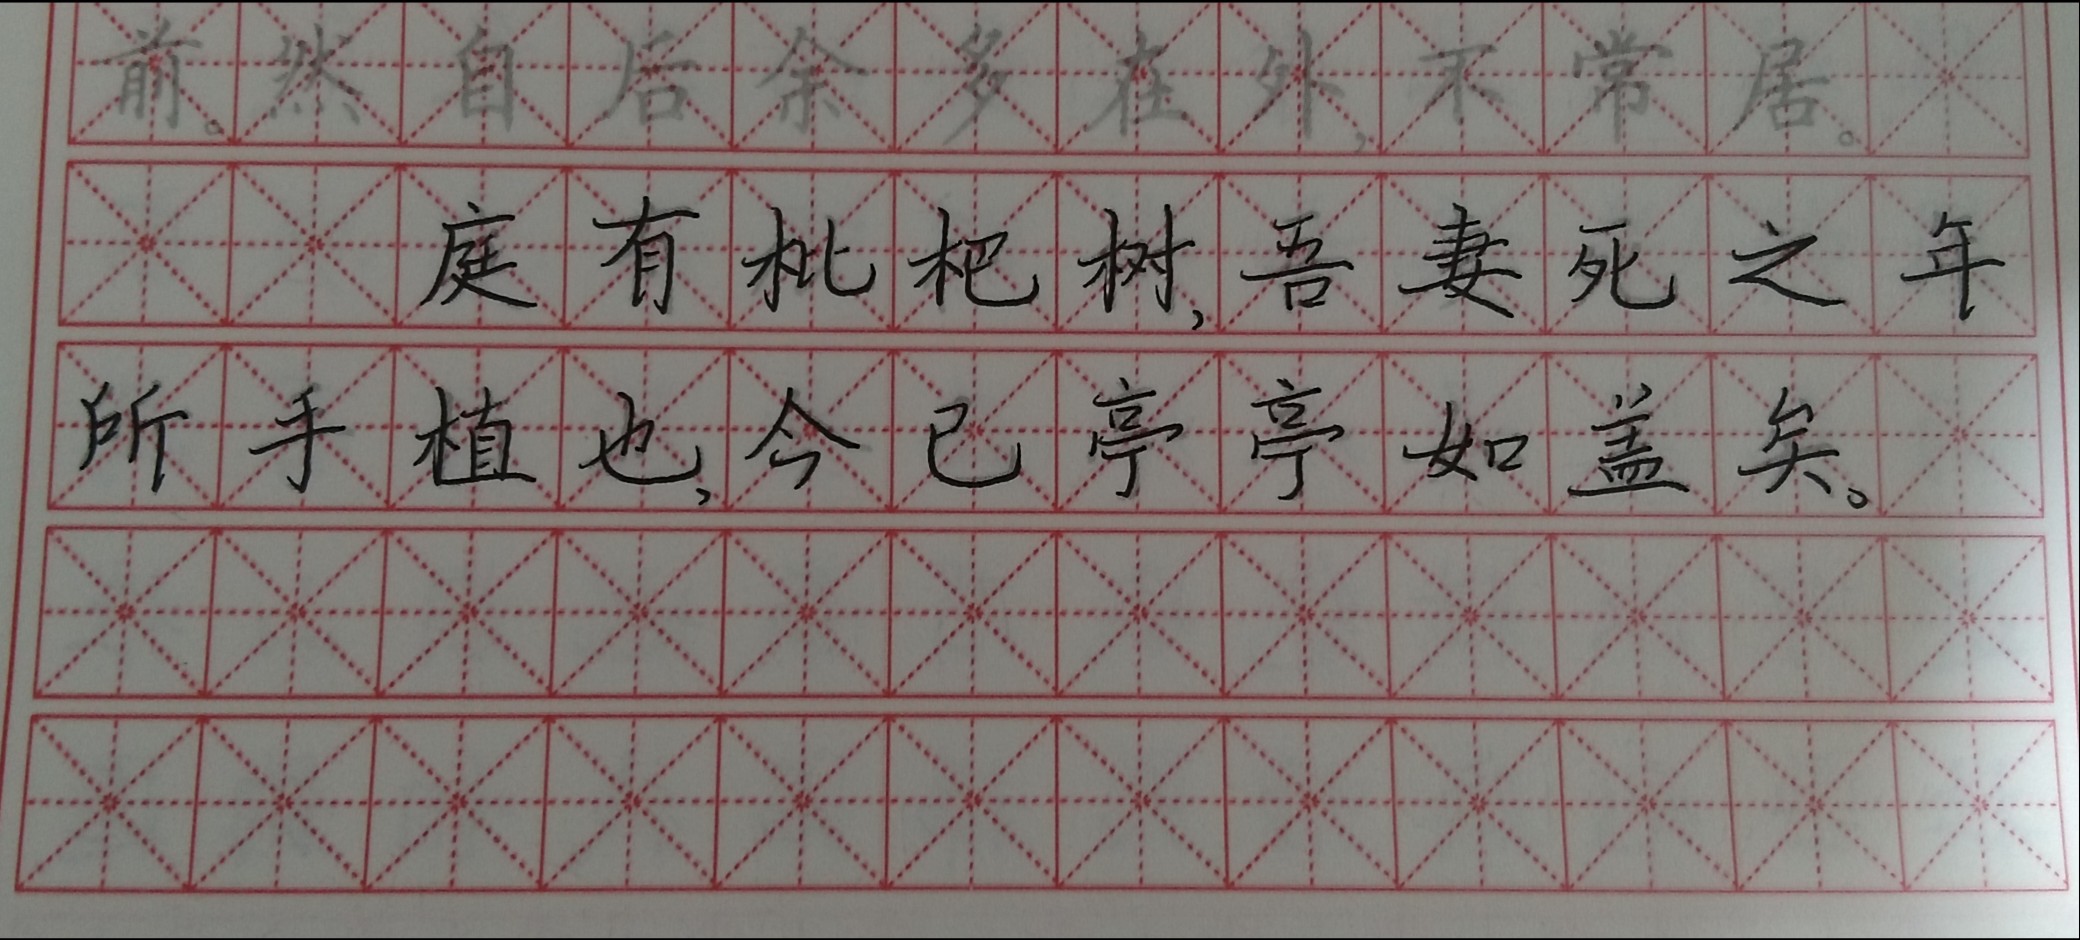 前。然自后余多在外，不常居。
庭有枇杷树，吾妻死之年
所手植也，今已亭亭如盖矣。